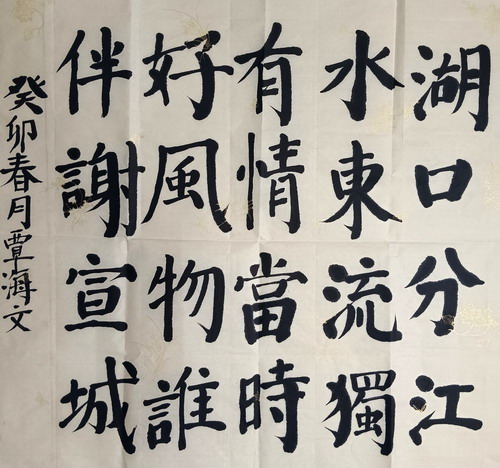 湖口分江
水東流獨
有情當時
好風物誰
伴謝宣城
癸卯春月覃海文